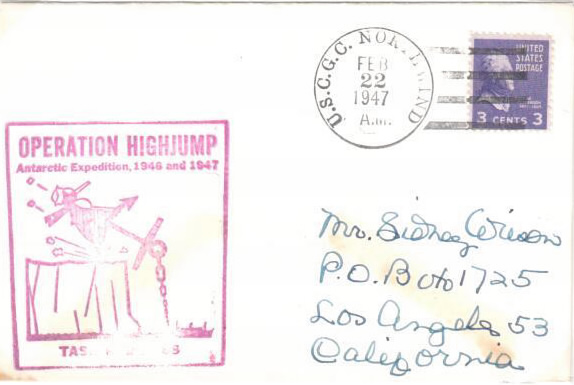 U.S.C.G.C. NORTHWIND
FEB
22
1947
A.M.
UNITED
STATES
POSTAGE
3 CENTS 3
OPERATION HIGHJUMP
Antarctic Expedition, 1946 and 1947
Mr. Sidney
P.O. Box 1725
Los Angeles 53
California